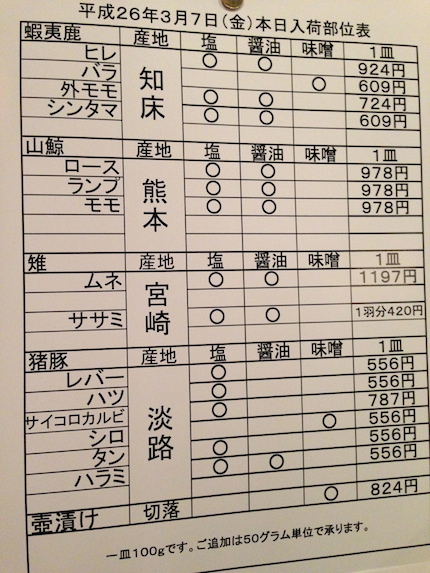 平成26年3月7日(金)本日入荷部位表
蝦夷鹿 産地 塩 醤油 味噌 1皿
知床
ヒレ ○ ○ 924円
バラ ○ 609円
外モモ ○ ○ 724円
シンタマ ○ ○ 609円
山鯨 産地 塩 醤油 味噌 1皿
熊本
ロース ○ ○ 978円
ランプ ○ ○ 978円
モモ ○ ○ 978円
雉 産地 塩 醤油 味噌 1皿
宮崎
ムネ ○ ○ 1197円
ササミ ○ ○ 1羽分420円
猪豚 産地 塩 醤油 味噌 1皿
淡路
レバー ○ 556円
ハツ ○ 556円
サイコロカルビ ○ 787円
シロ ○ 556円
タン ○ 556円
ハラミ ○ ○ 556円
壺漬け 切落 ○ 824円
一皿100gです。ご追加は50グラム単位で承ります。